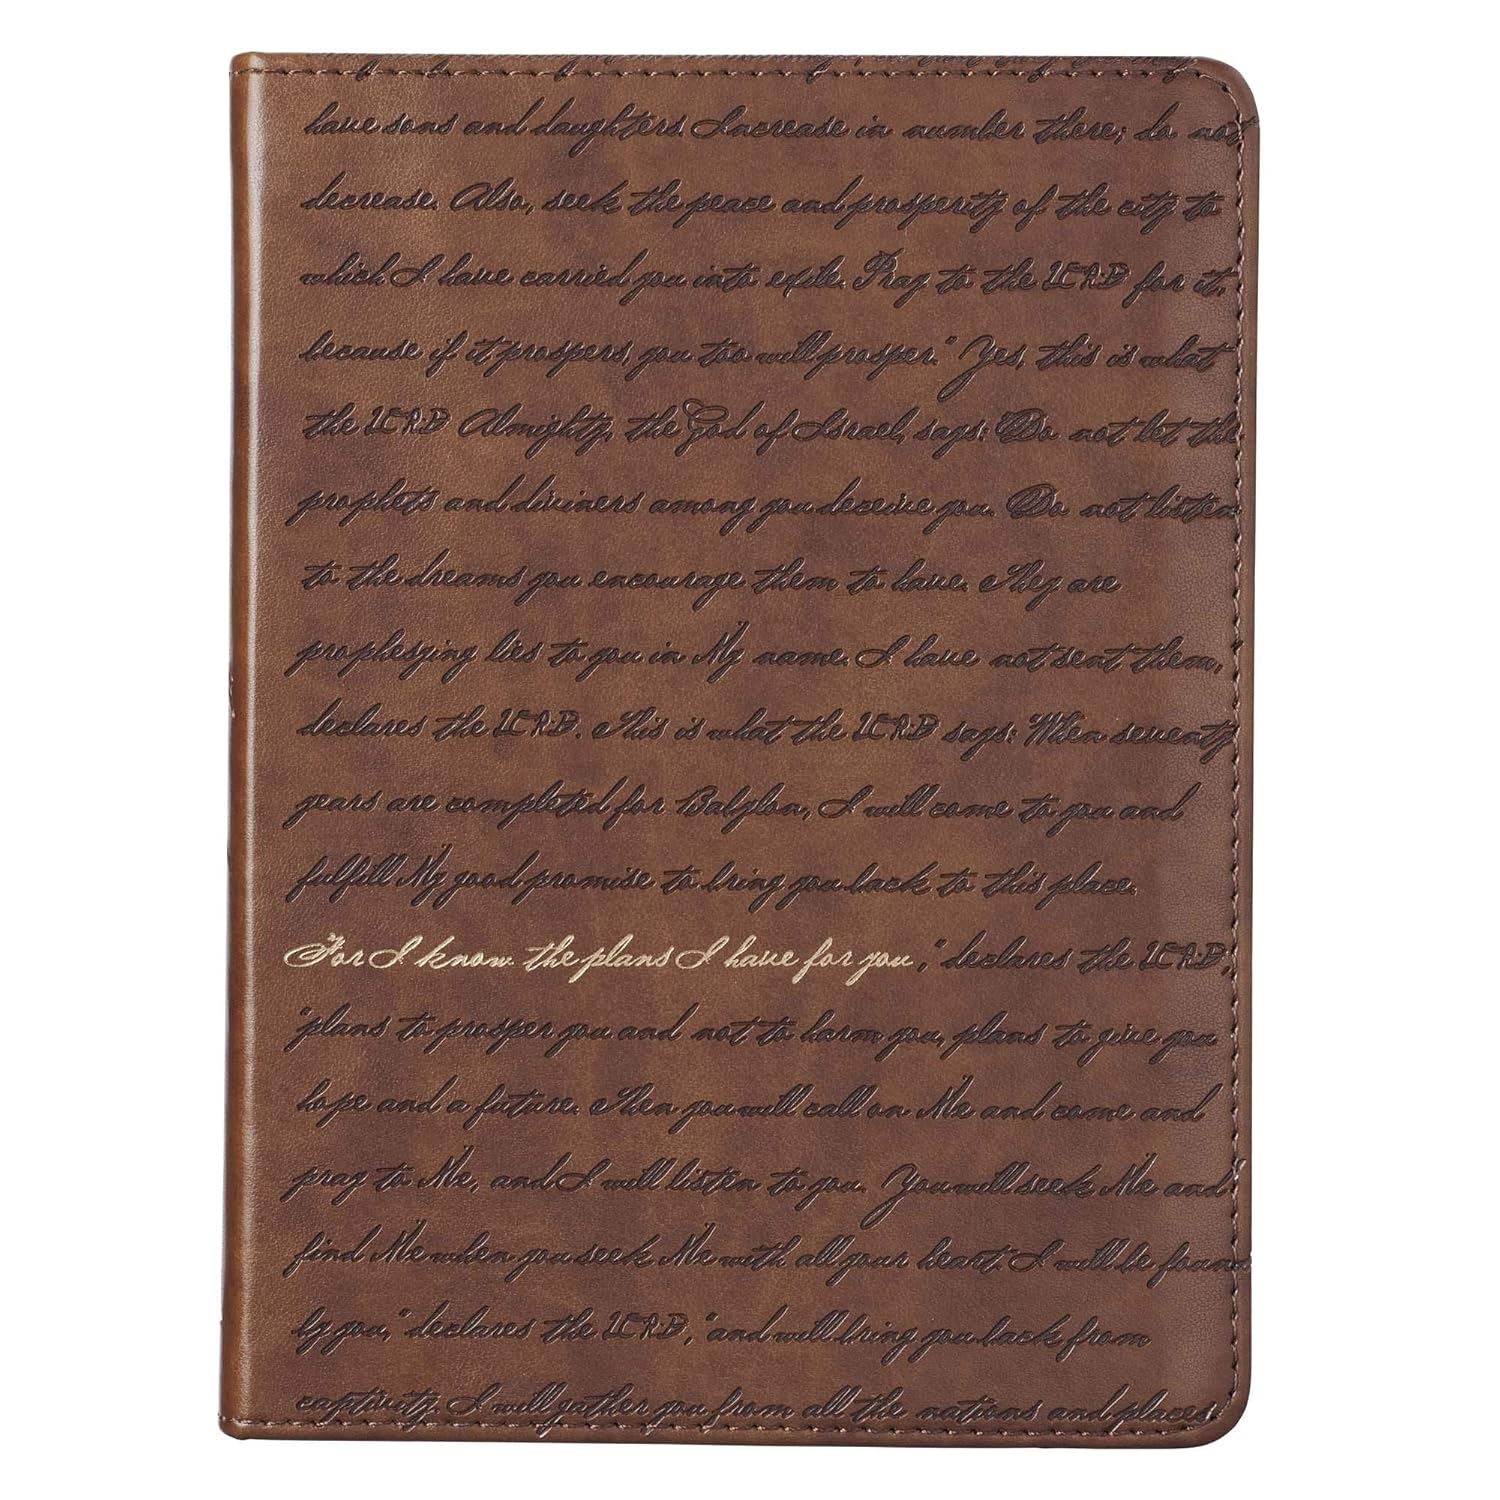 have sons and daughters. Increase in number there; do not
decrease. Also, seek the peace and prosperity of the city to
which I have carried you into exile. Pray to the LORD for it,
because if it prospers, you too will prosper." Yes, this is what
the LORD Almighty, the God of Israel, says: Do not let the
prophets and diviners among you deceive you. Do not listen
to the dreams you encourage them to have. They are
prophesying lies to you in My name. I have not sent them,
declares the LORD. This is what the LORD says: When seventy
years are completed for Babylon, I will come to you and
fulfill My good promise to bring you back to this place.
For I know the plans I have for you," declares the LORD,
"plans to prosper you and not to harm you, plans to give you
hope and a future. Then you will call on Me and come and
pray to Me, and I will listen to you. You will seek Me and
find Me when you seek Me with all your heart. I will be found
by you," declares the LORD, "and will bring you back from
captivity. I will gather you from all the nations and places